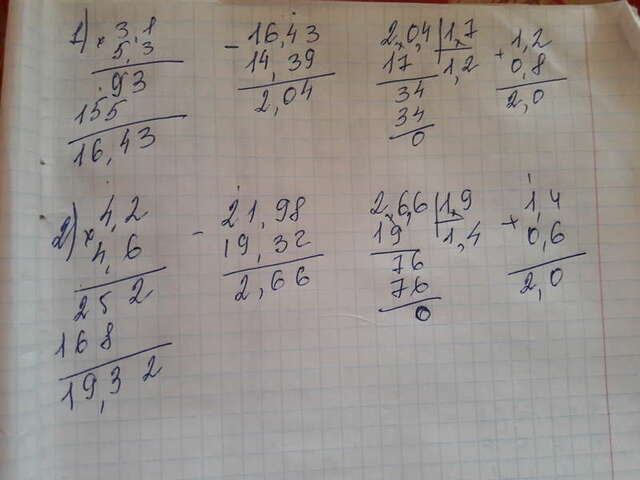 1) × 3,1
5,3
93
155
16,43
- 16,43
14,39
2,04
2,0,4 | 1,7
17 1,2
34
34
0
+ 1,2
0,8
2,0
2) × 4,2
4,6
252
168
19,32
- 21,98
19,32
2,66
2,6,6 | 1,9
19 1,4
76
76
0
+ 1,4
0,6
2,0